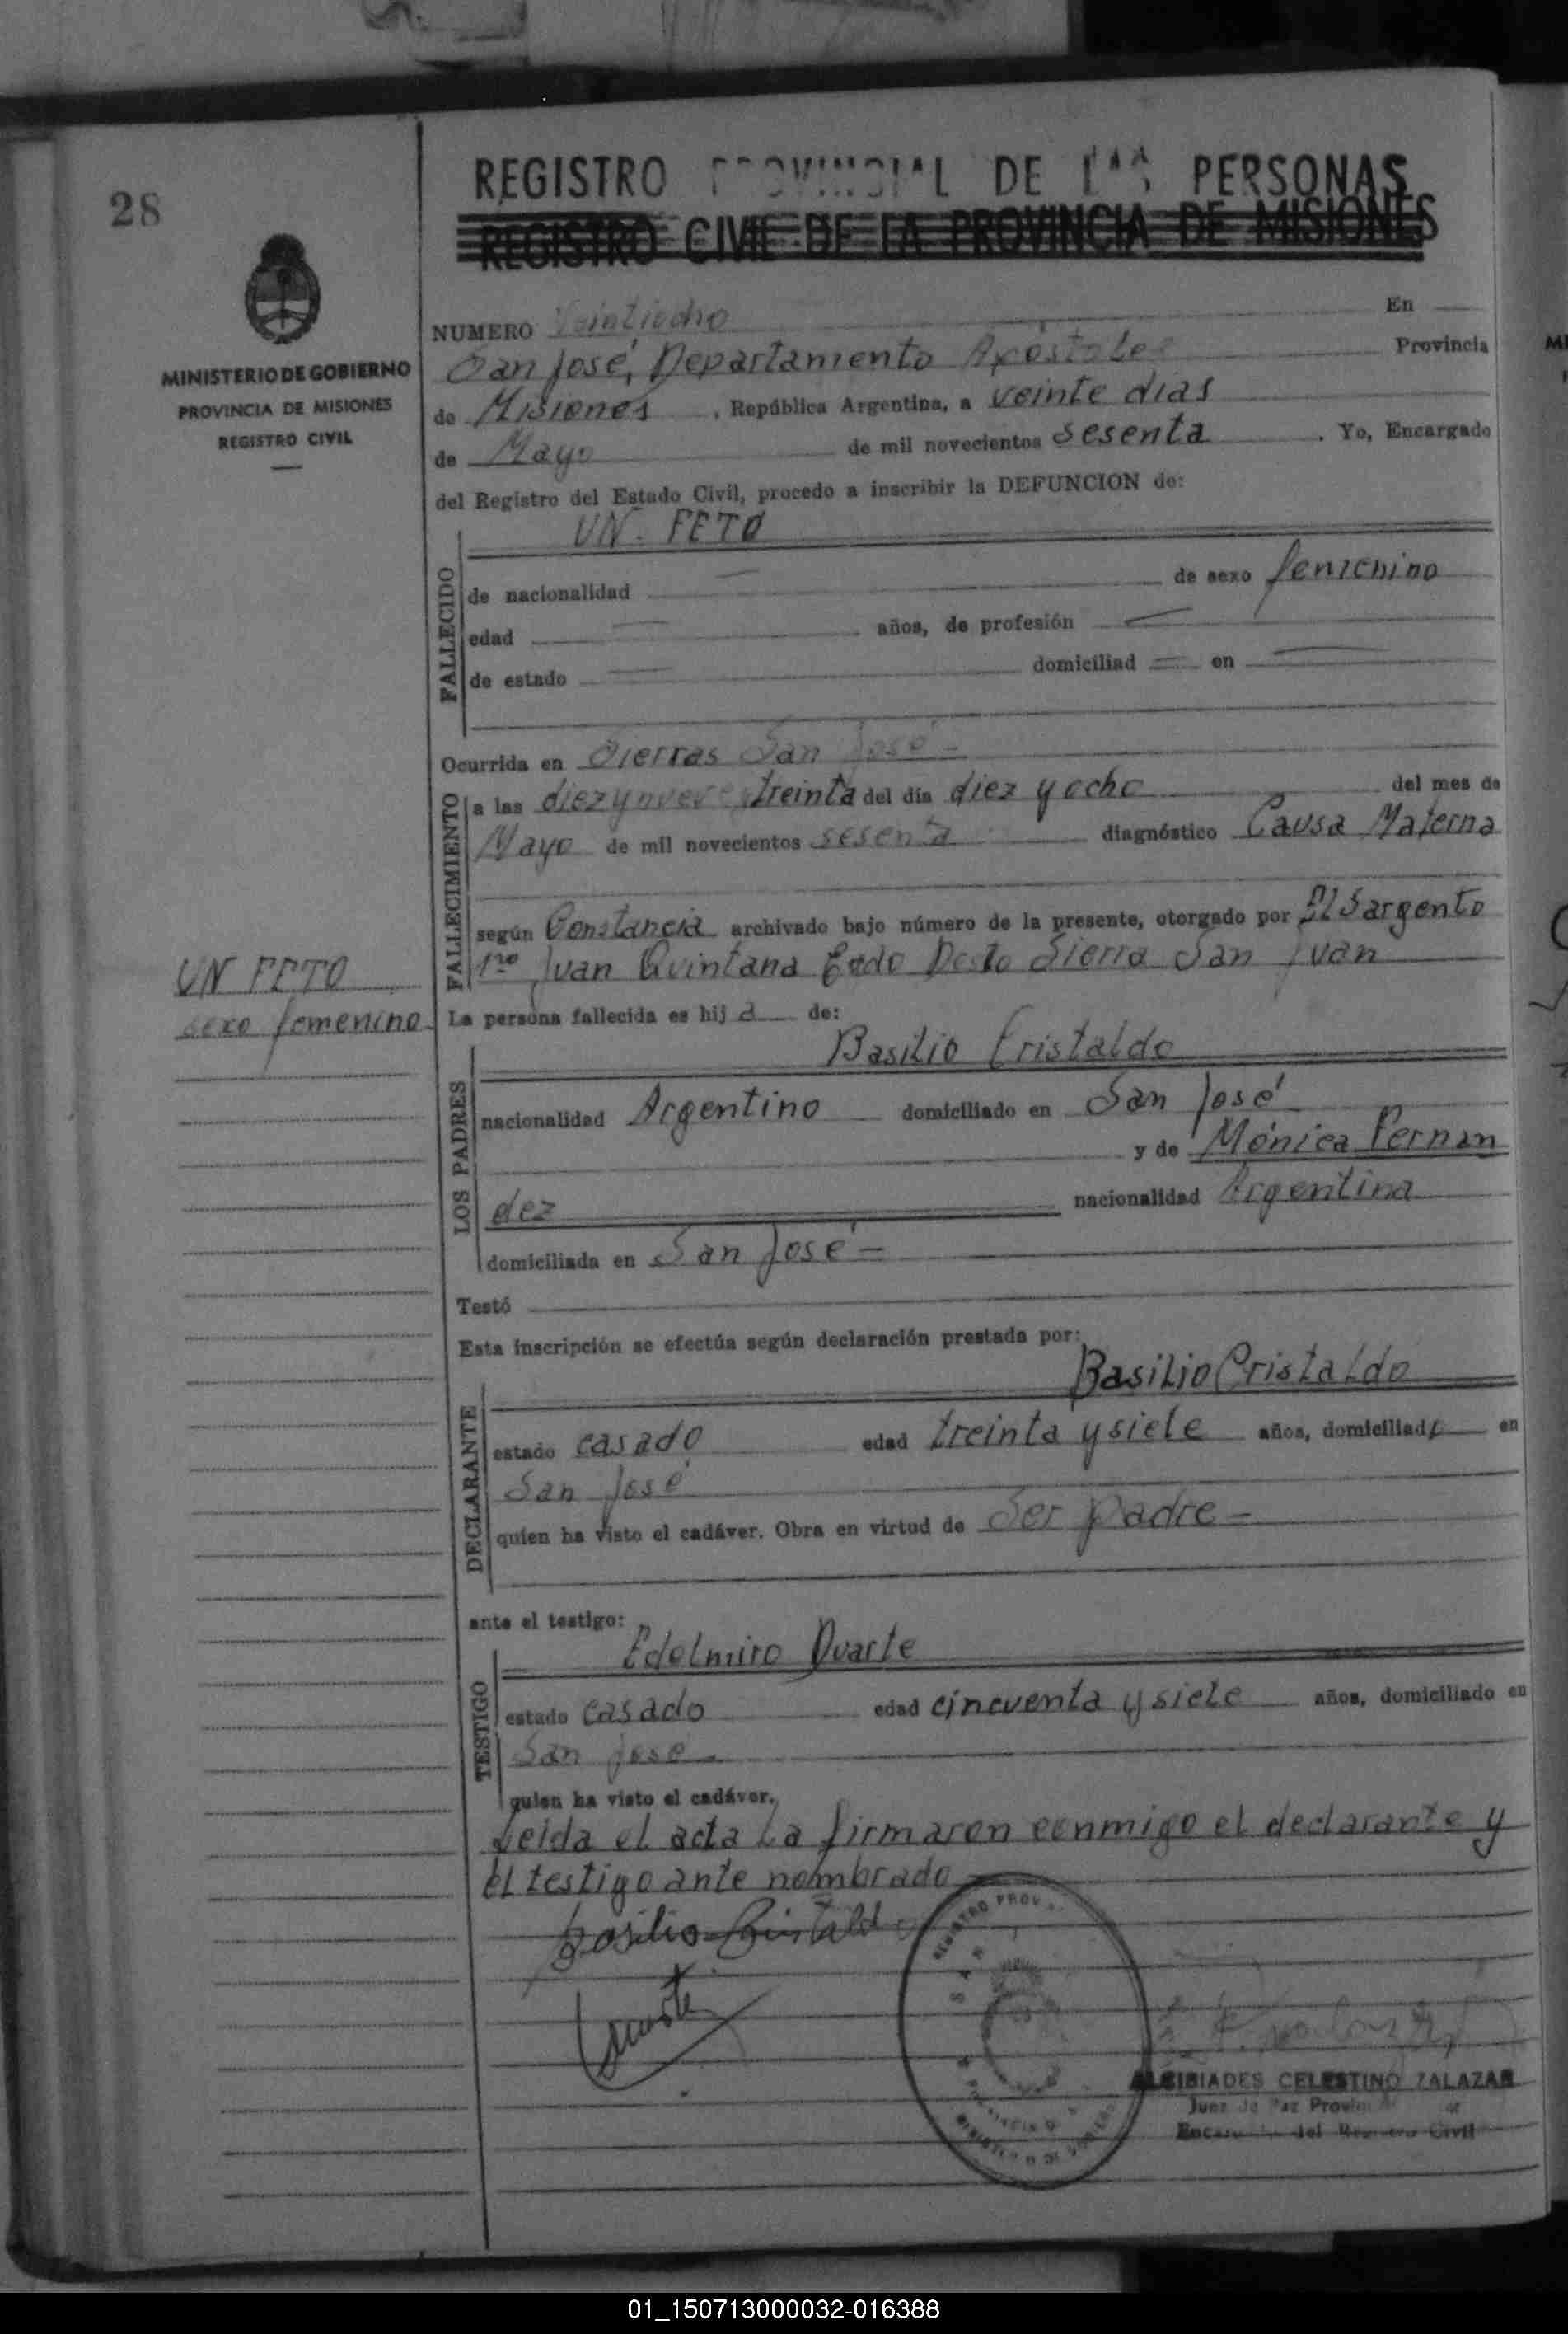 28
REGISTRO PROVINCIAL DE LAS PERSONAS
REGISTRO CIVIL DE LA PROVINCIA DE MISIONES
MINISTERIO DE GOBIERNO
PROVINCIA DE MISIONES
REGISTRO CIVIL
NUMERO Veintiocho En
San José, Departamento Apóstoles Provincia
de Misiones, República Argentina, a veinte dias
de Mayo de mil novecientos sesenta. Yo, Encargado
del Registro del Estado Civil, procedo a inscribir la DEFUNCION de:
UN. FETO
FALLECIDO
de nacionalidad — de sexo femenino
edad — años, de profesión —
de estado = domiciliad = en =
Ocurrida en Sierras San José -
FALLECIMIENTO
a las diez y nueve treinta del día diez y ocho del mes de
Mayo de mil novecientos sesenta diagnóstico Causa Materna
según Constancia archivado bajo número de la presente, otorgado por El Sargento
1ro Juan Quintana Sierra San Juan
UN FETO
sexo femenino
La persona fallecida es hija de:
LOS PADRES
Basilio Cristaldo
nacionalidad Argentino domiciliado en San José
y de Mónica Fernan
dez nacionalidad Argentina
domiciliada en San José -
Testó
Esta inscripción se efectúa según declaración prestada por:
DECLARANTE
Basilio Cristaldo
estado casado edad treinta y siete años, domiciliado en
San José
quien ha visto el cadáver. Obra en virtud de Ser padre -
ante el testigo:
TESTIGO
Edelmiro Duarte
estado casado edad cincuenta y siete años, domiciliado en
San José -
quien ha visto el cadáver.
Leida el acta La firmaron conmigo el declarante y
El testigo ante nombrado
Basilio Cristaldo
Duarte
ALCIBIADES CELESTINO ZALAZAR
Juez de Paz
Encargado del Registro Civil
01_150713000032-016388